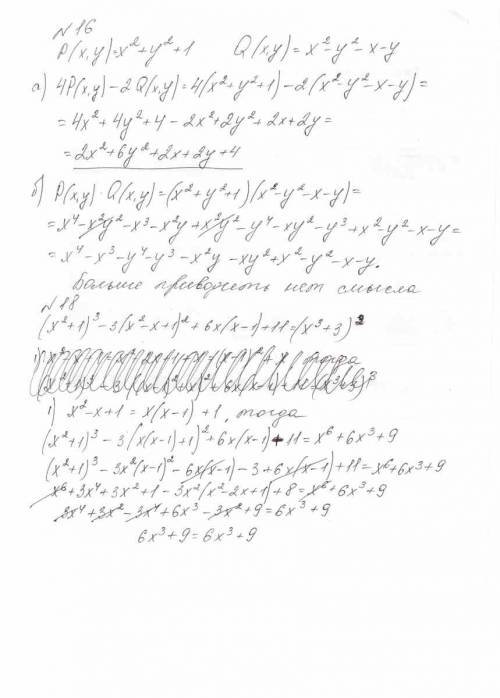 №16
P(x,y)=x²+y²+1 Q(x,y)=x²-y²-x-y
а) 4P(x,y)-2Q(x,y)=4(x²+y²+1)-2(x²-y²-x-y)=
=4x²+4y²+4-2x²+2y²+2x+2y=
=2x²+6y²+2x+2y+4
б) P(x,y)·Q(x,y)=(x²+y²+1)(x²-y²-x-y)=
=x⁴-x²y²-x³-x²y+x²y²-y⁴-xy²-y³+x²-y²-x-y=
=x⁴-x³-y⁴-y³-x²y-xy²+x²-y²-x-y.
Больше приводить нет смысла
№18
(x²+1)³-3(x²-x+1)²+6x(x-1)+11=(x³+3)²
1) x²-x+1=x(x-1)+1, тогда
(x²+1)³-3(x(x-1)+1)²+6x(x-1)+11=x⁶+6x³+9
(x²+1)³-3x²(x-1)²-6x(x-1)-3+6x(x-1)+11=x⁶+6x³+9
x⁶+3x⁴+3x²+1-3x²(x²-2x+1)+8=x⁶+6x³+9
3x⁴+3x²-3x⁴+6x³-3x²+9=6x³+9
6x³+9=6x³+9